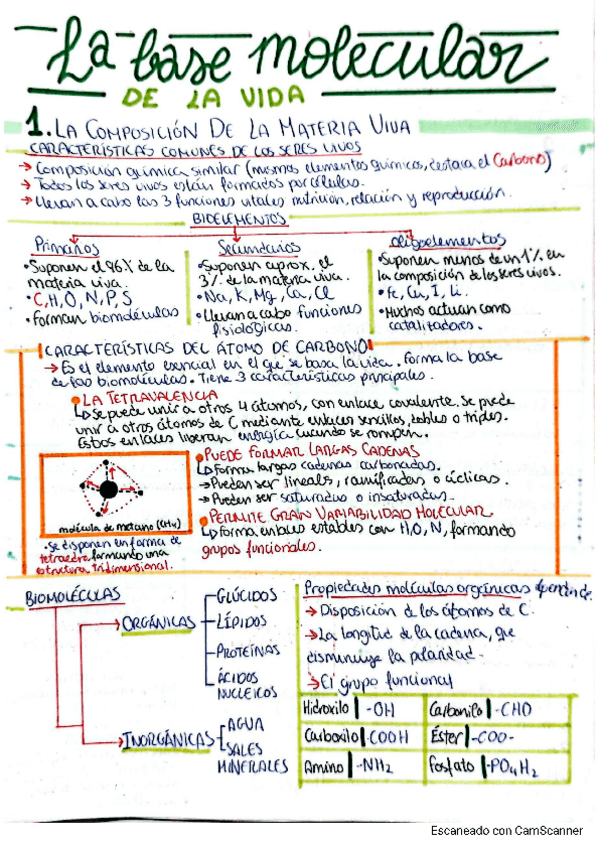 La base molecular
DE LA VIDA
1. LA COMPOSICIÓN DE LA MATERIA VIVA
CARACTERÍSTICAS COMUNES DE LOS SERES VIVOS
→ Composición química similar (mismos elementos químicos, destaca el Carbono)
→ Todos los seres vivos están formados por células.
→ Llevan a cabo las 3 funciones vitales nutrición, relación y reproducción.
BIOELEMENTOS
Primarios
• Suponen el 96% de la
materia viva.
• C, H, O, N, P, S
• Forman biomoléculas
Secundarios
• Suponen aprox. el
3% de la materia viva.
• Na, K, Mg, Ca, Cl
• Llevan a cabo funciones
fisiológicas.
Oligoelementos
• Suponen menos de un 1% en
la composición de los seres vivos.
• Fe, Cu, I, Li.
• Muchos actúan como
catalizadores.
CARACTERÍSTICAS DEL ÁTOMO DE CARBONO
→ Es el elemento esencial en el que se basa la vida. Forma la base
de las biomoléculas. Tiene 3 características principales.
• LA TETRAVALENCIA
↳ Se puede unir a otros 4 átomos, con enlace covalente. Se puede
unir a otros átomos de C mediante enlaces sencillos, dobles o triples.
Estos enlaces liberan energía cuando se rompen.
molécula de metano (CH4)
• Se disponen en forma de
tetraedro formando una
estructura tridimensional.
• PUEDE FORMAR LARGAS CADENAS
↳ Forma largas cadenas carbonadas.
→ Pueden ser lineals, ramificadas o cíclicas.
→ Pueden ser saturadas o insaturadas.
• PERMITE GRAN VARIABILIDAD MOLECULAR
↳ Forma enlaces estables con H, O, N, formando
grupos funcionales.
BIOMOLÉCULAS
→ ORGÁNICAS
GLÚCIDOS
LÍPIDOS
PROTEÍNAS
ÁCIDOS
NUCLEICOS
→ INORGÁNICAS
AGUA
SALES
MINERALES
Propiedades moléculas orgánicas dependen de.
→ Disposición de los átomos de C.
→ La longitud de la cadena, que
disminuye la polaridad.
→ El grupo funcional
Hidroxilo | -OH
Carbonilo | -CHO
Carboxilo | -COOH
Éster | -COO-
Amino | -NH2
Fosfato | -PO4H2
Escaneado con CamScanner